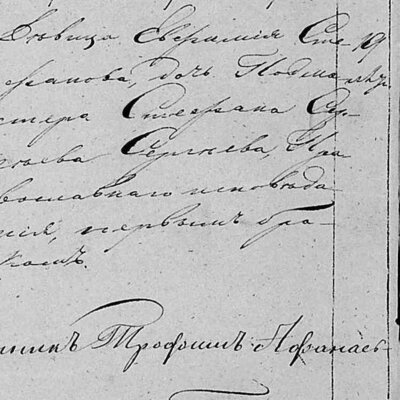 Девица Евфимия Сте 19
фанова, дочь Подма лѣт
стера Стефана Сер-
геева Сергѣева, Пра
вославнаго исповѣда
ния, первымъ бра-
комъ.
Трофимъ Афанась